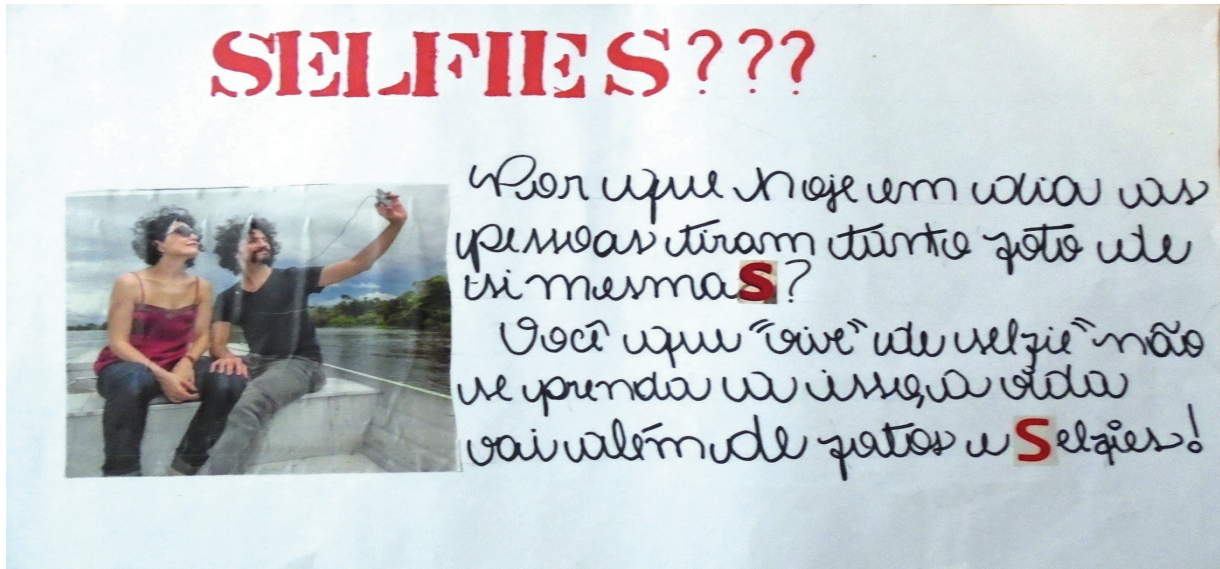 SELFIES???
Por que hoje em dia as
pessoas tiram tanto foto de
si mesmas?
Você que "vive" de selfie" não
se prenda a isso, a vida
vai além de fotos e Selfies!